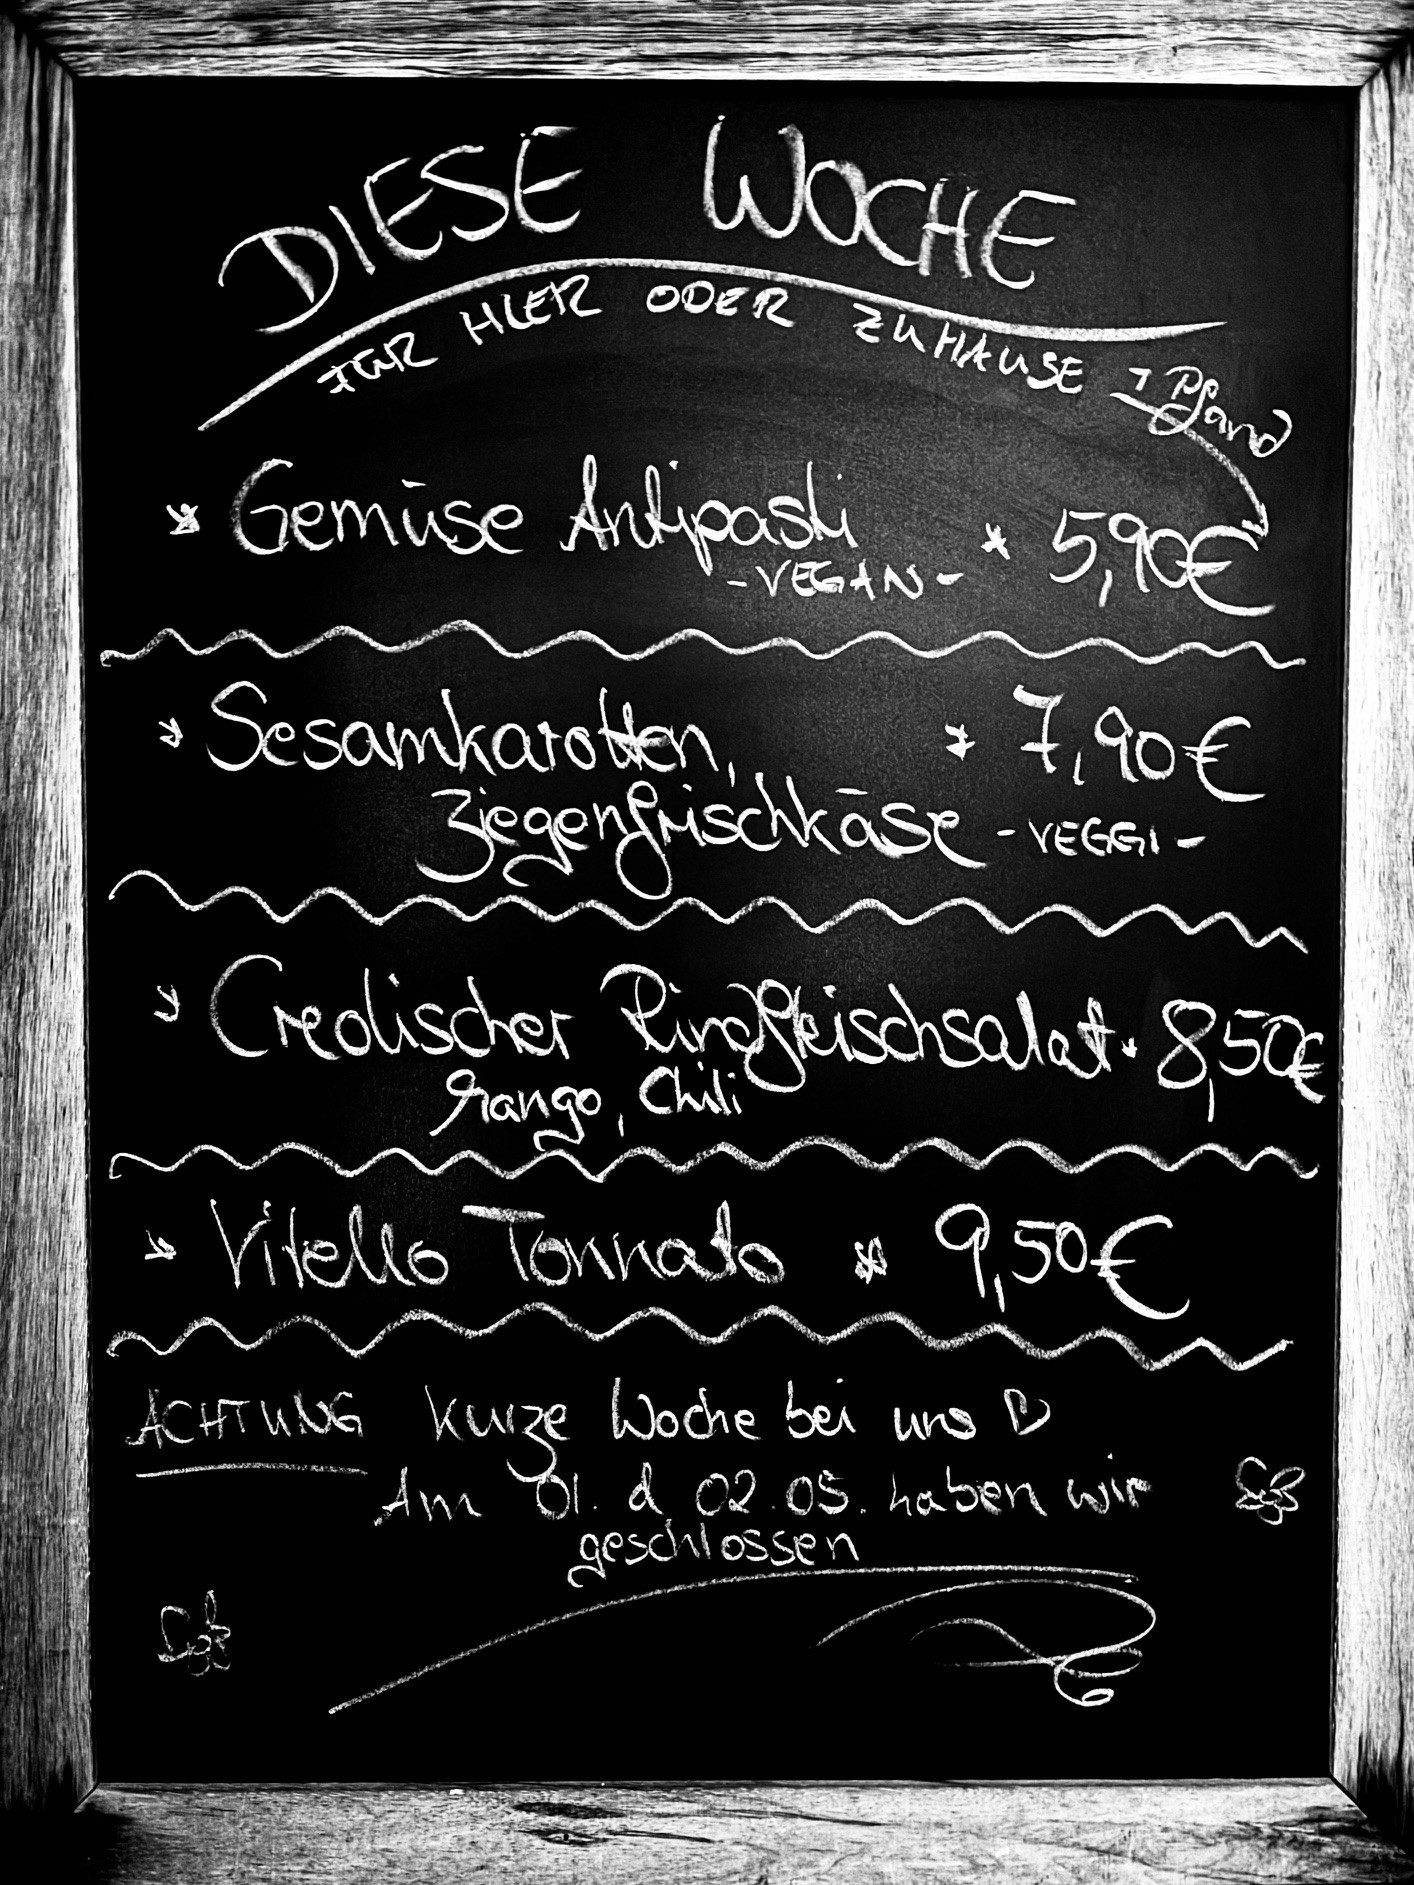 DIESE WOCHE
FÜR HIER ODER ZUHAUSE + Pfand
* Gemüse Antipasti * 5,90€
- VEGAN -
* Sesamkarotten, * 7,90€
Ziegenfrischkäse - VEGGI -
* Creolischer Rindfleischsalat * 8,50€
Mango, Chili
* Vitello Tonnato * 9,50€
ACHTUNG Kurze Woche bei uns ♡
Am 01. & 02.05. haben wir
geschlossen